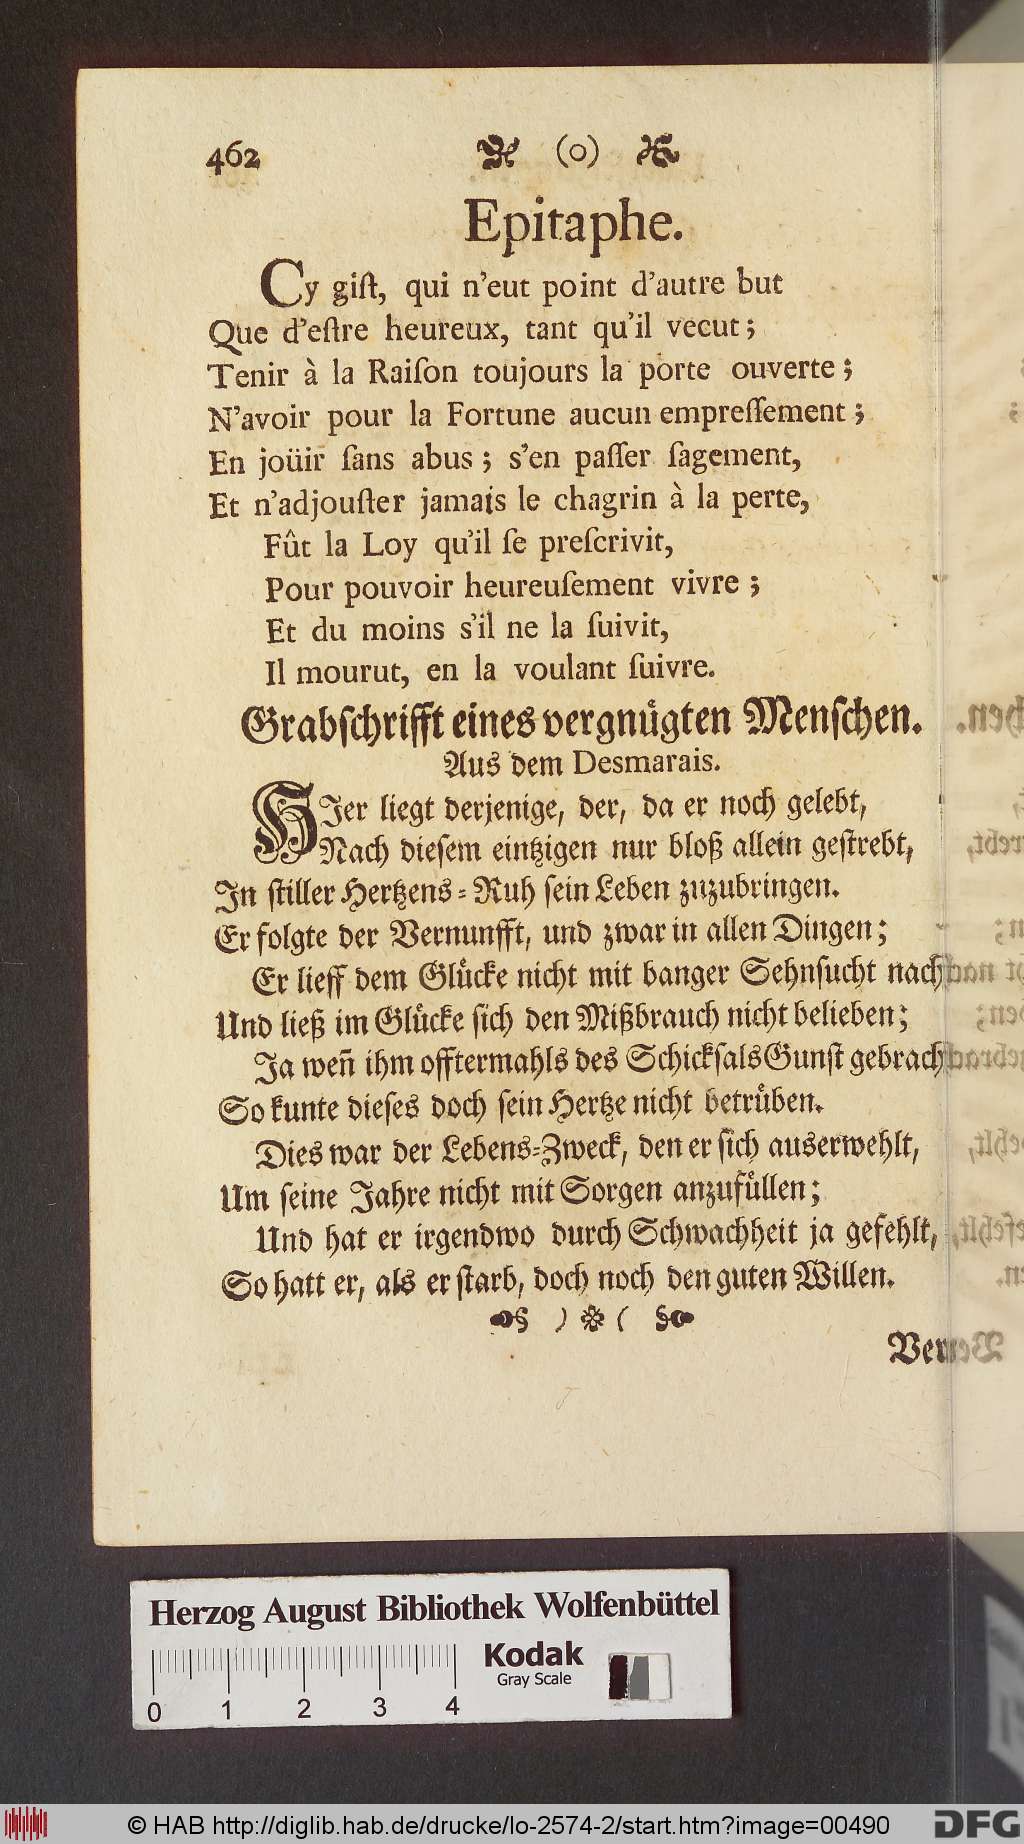 462 (o)
Epitaphe.
Cy giſt, qui n'eut point d'autre but
Que d'eſtre heureux, tant qu'il vecut;
Tenir à la Raiſon toujours la porte ouverte;
N'avoir pour la Fortune aucun empreſſement;
En joüir ſans abus; s'en paſſer ſagement,
Et n'adjouſter jamais le chagrin à la perte,
Fût la Loy qu'il ſe preſcrivit,
Pour pouvoir heureuſement vivre;
Et du moins s'il ne la ſuivit,
Il mourut, en la voulant ſuivre.
Grabſchrifft eines vergnuͤgten Menſchen.
Aus dem Desmarais.
HJer liegt derjenige, der, da er noch gelebt,
Nach dieſem eintzigen nur bloß allein geſtrebt,
In ſtiller Hertzens-Ruh ſein Leben zuzubringen.
Er folgte der Vernunfft, und zwar in allen Dingen;
Er lieff dem Gluͤcke nicht mit banger Sehnſucht nach
Und ließ im Gluͤcke ſich den Mißbrauch nicht belieben;
Ja weñ ihm offtermahls des Schickſals Gunſt gebrach
So kunte dieſes doch ſein Hertze nicht betruͤben.
Dies war der Lebens-Zweck, den er ſich auserwehlt,
Um ſeine Jahre nicht mit Sorgen anzufuͤllen;
Und hat er irgendwo durch Schwachheit ja gefehlt,
So hatt er, als er ſtarb, doch noch den guten Willen.
Ver
Herzog August Bibliothek Wolfenbüttel
Kodak
Gray Scale
0 1 2 3 4
© HAB http://diglib.hab.de/drucke/lo-2574-2/start.htm?image=00490
DFG